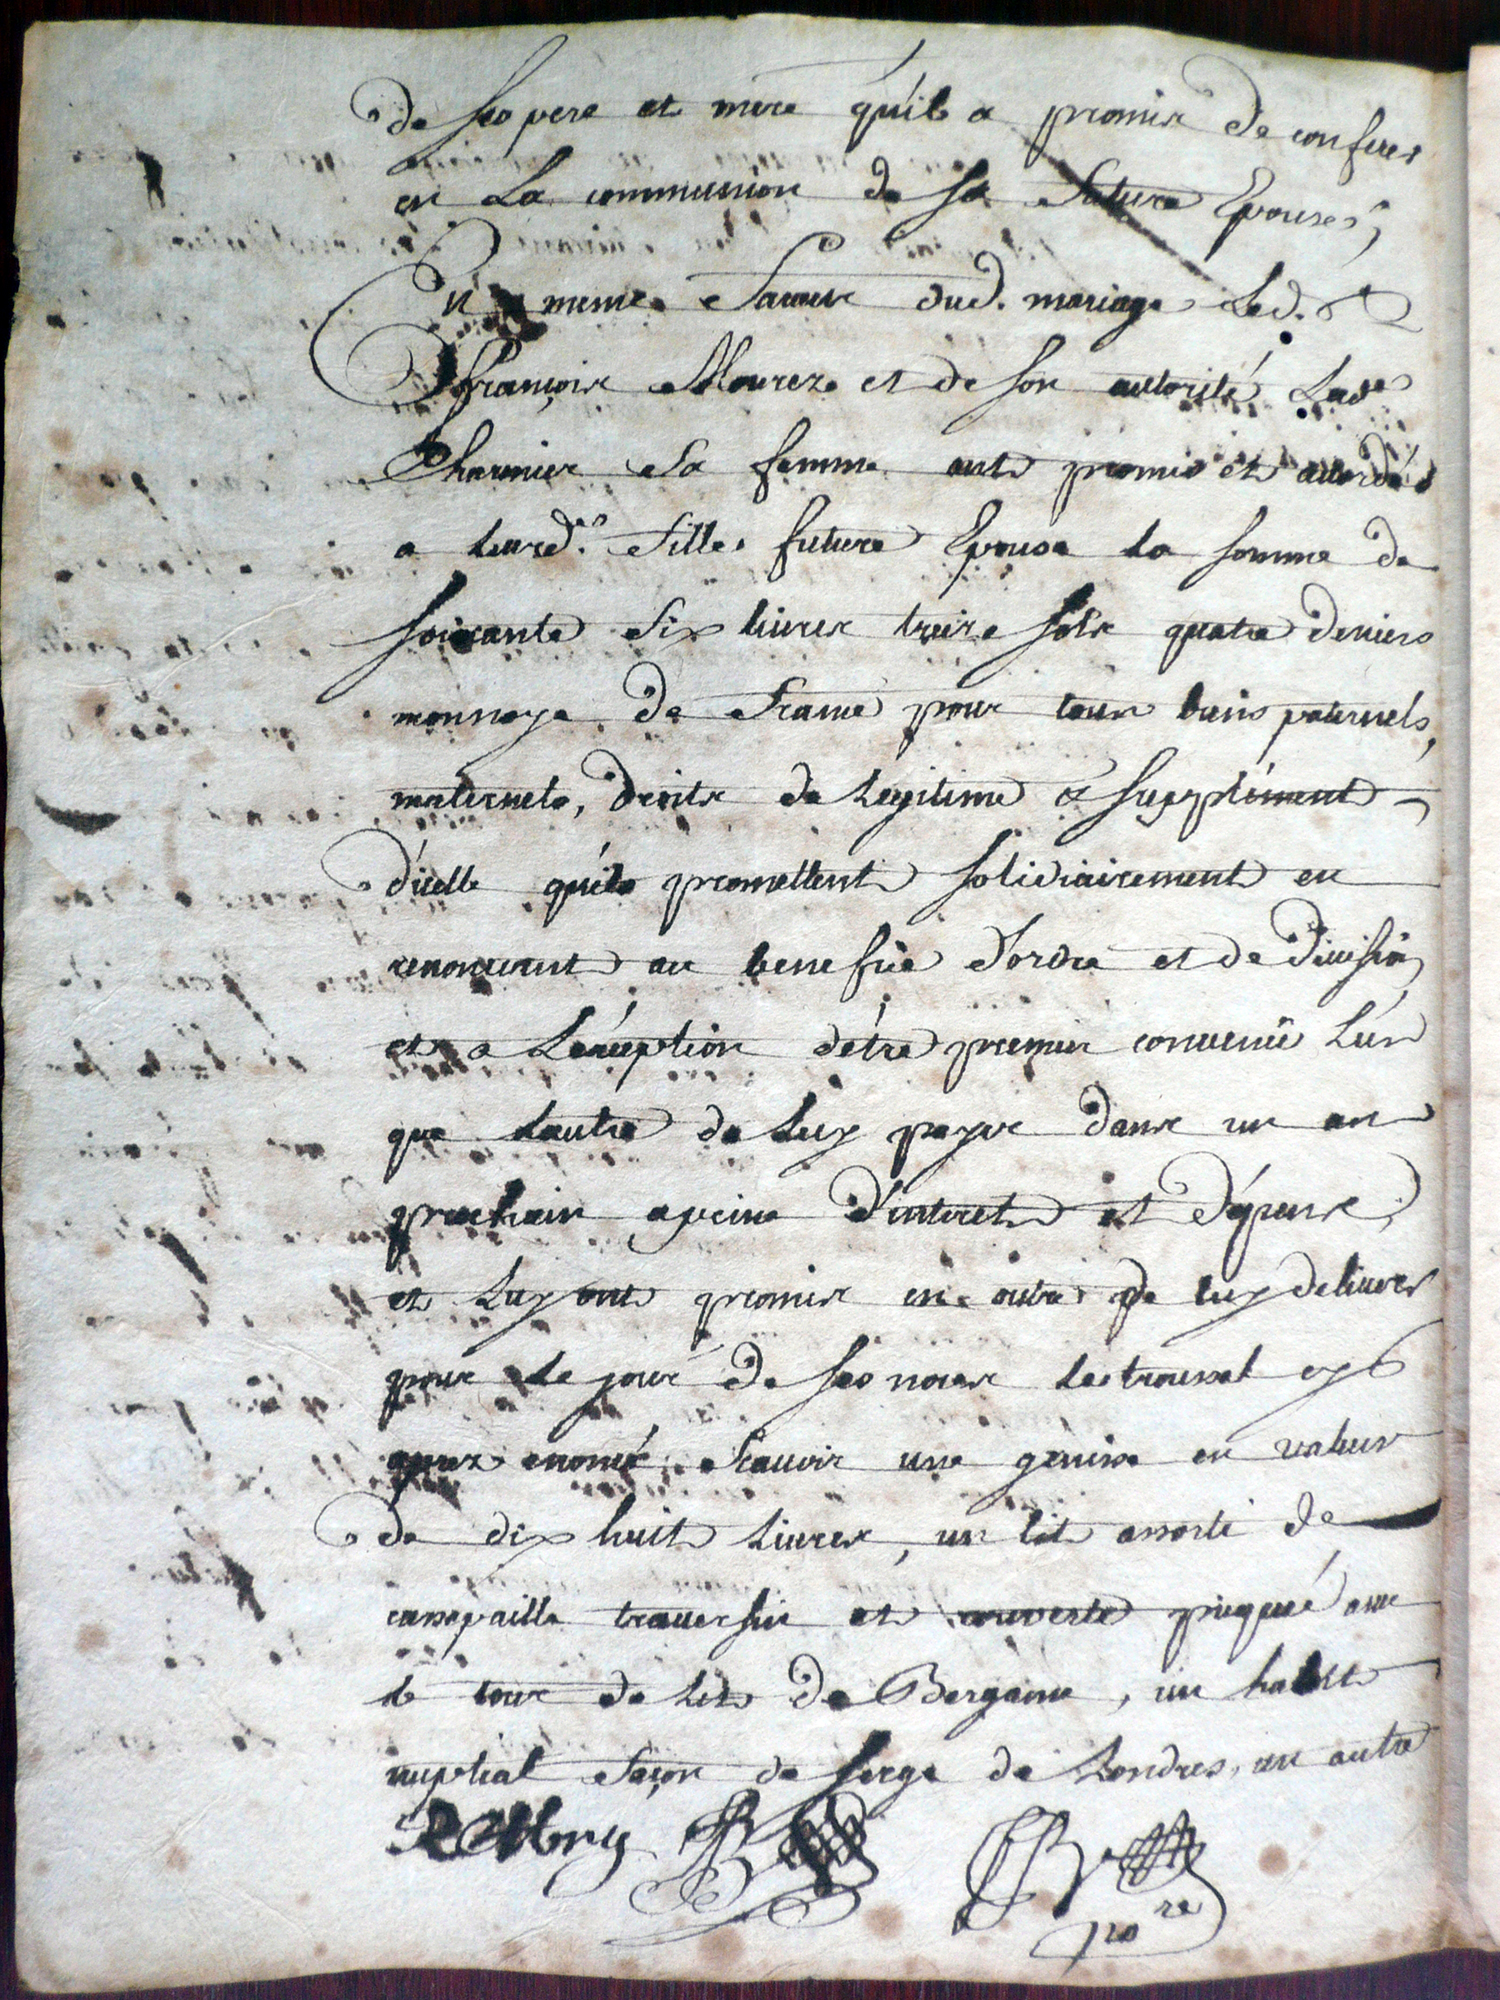 de ses pere et mere qu'il a promis de conferer
en La communion de sa future Epouse,
En meme faveur dud. mariage Led. Sr
François Mourez et de son autorité Lade
Charnier sa femme ont promis et accordés
a leurd. fille future Epouse la somme de
soixante six livres treize sols quatre deniers
monnoye de france pour tous biens paternels,
maternels, droits de Legitime & supplément
d'icelle qu'ils promettent solidiairement en
renonceant au benefice d'ordre et de division
et a L'éxception d'étre premier convenû L'un
que Lautre de Luy payer dans un an
prochain a peine d'interet et dépens,
et Luy ont promis en outre de luy deliurer
pour le jour de ses noces Le troussel cy
aprez enoncé Scauoir une genisse en valeur
de dix huit Liures, un lit assorti de
cassepaille trauersin et couverte piquée avec
le tour de Lit de Bergame, un habit
nuptial façon de serge de Londres, un autre